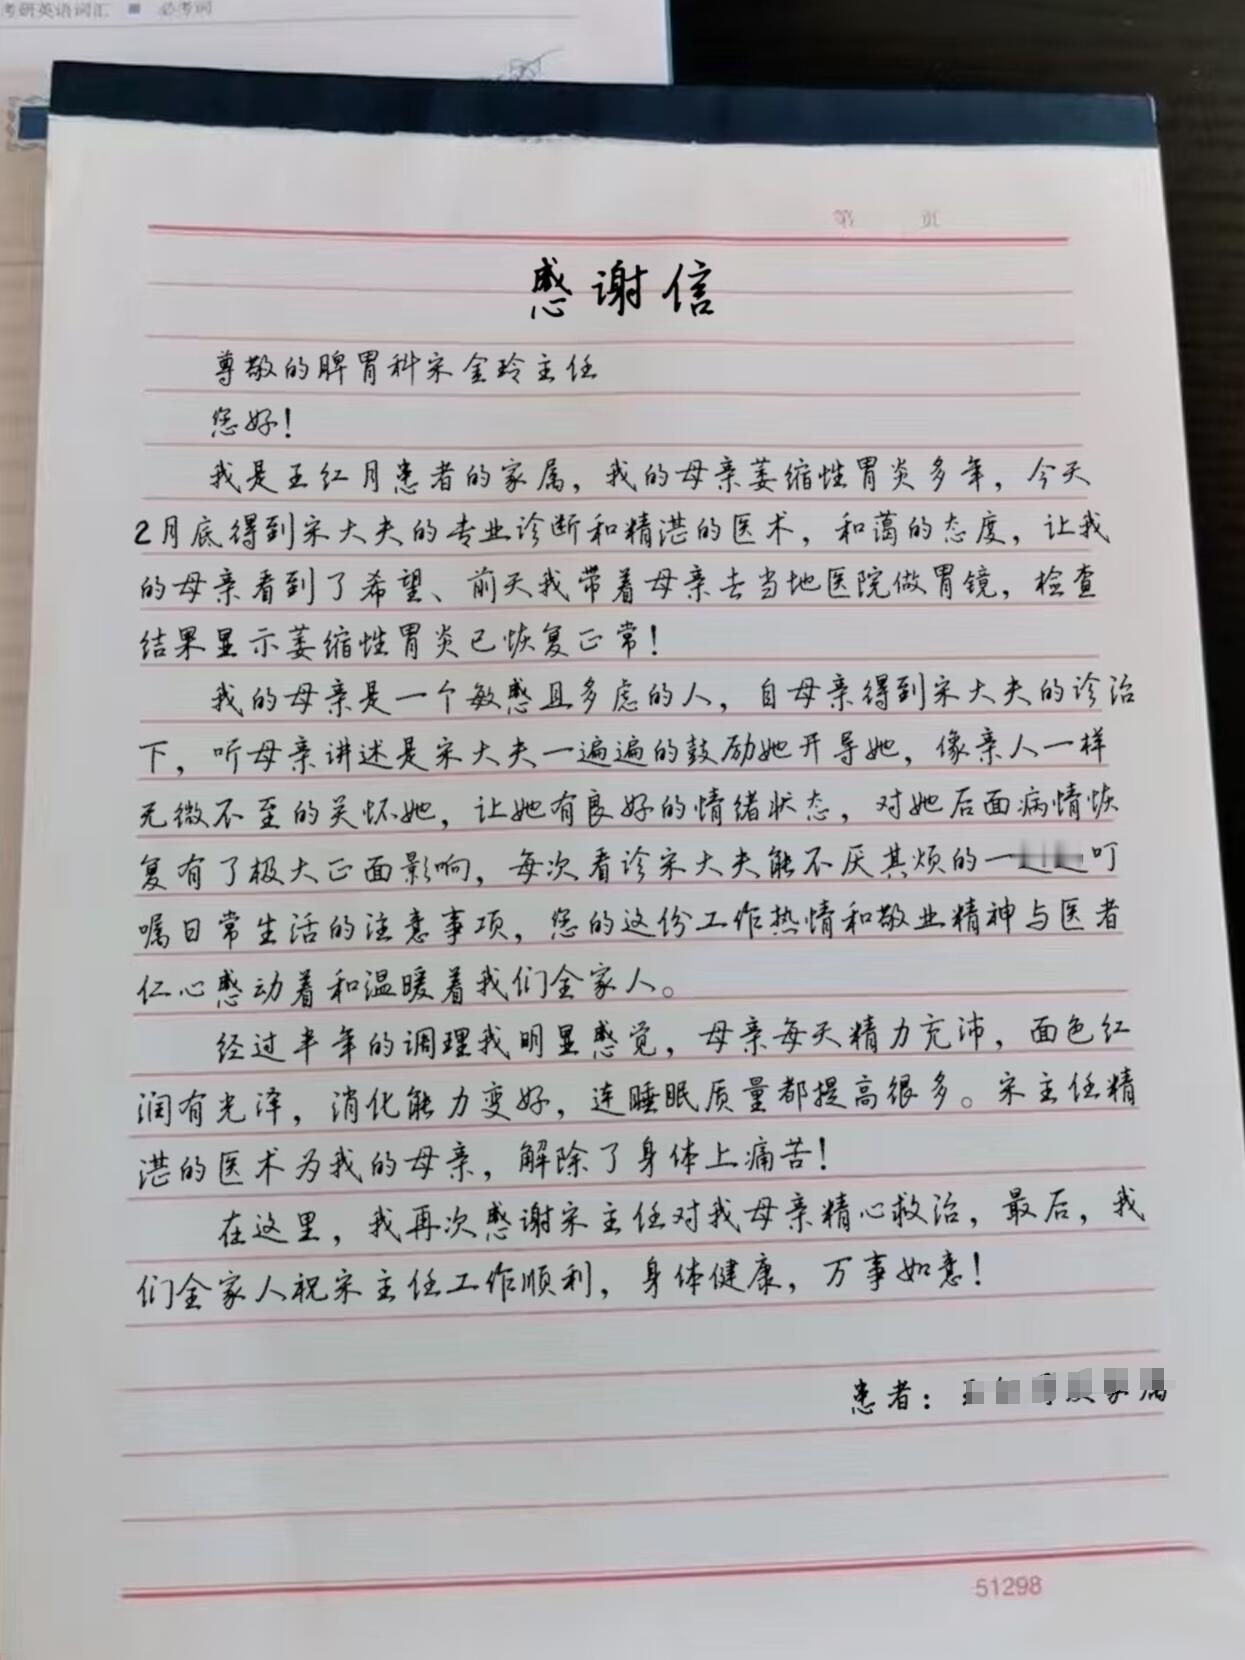 考研英语词汇 ■ 必考词
第 页
感谢信
尊敬的脾胃科宋金玲主任
您好!
我是王红月患者的家属，我的母亲萎缩性胃炎多年，今天
2月底得到宋大夫的专业诊断和精湛的医术，和蔼的态度，让我
的母亲看到了希望、前天我带着母亲去当地医院做胃镜，检查
结果显示萎缩性胃炎已恢复正常!
我的母亲是一个敏感且多虑的人，自母亲得到宋大夫的诊治
下，听母亲讲述是宋大夫一遍遍的鼓励她开导她，像亲人一样
无微不至的关怀她，让她有良好的情绪状态，对她后面病情恢
复有了极大正面影响，每次看诊宋大夫能不厌其烦的一叮
嘱日常生活的注意事项，您的这份工作热情和敬业精神与医者
仁心感动着和温暖着我们全家人。
经过半年的调理我明显感觉，母亲每天精力充沛，面色红
润有光泽，消化能力变好，连睡眠质量都提高很多。宋主任精
湛的医术为我的母亲，解除了身体上痛苦!
在这里，我再次感谢宋主任对我母亲精心救治，最后，我
们全家人祝宋主任工作顺利，身体健康，万事如意!
患者：
51298